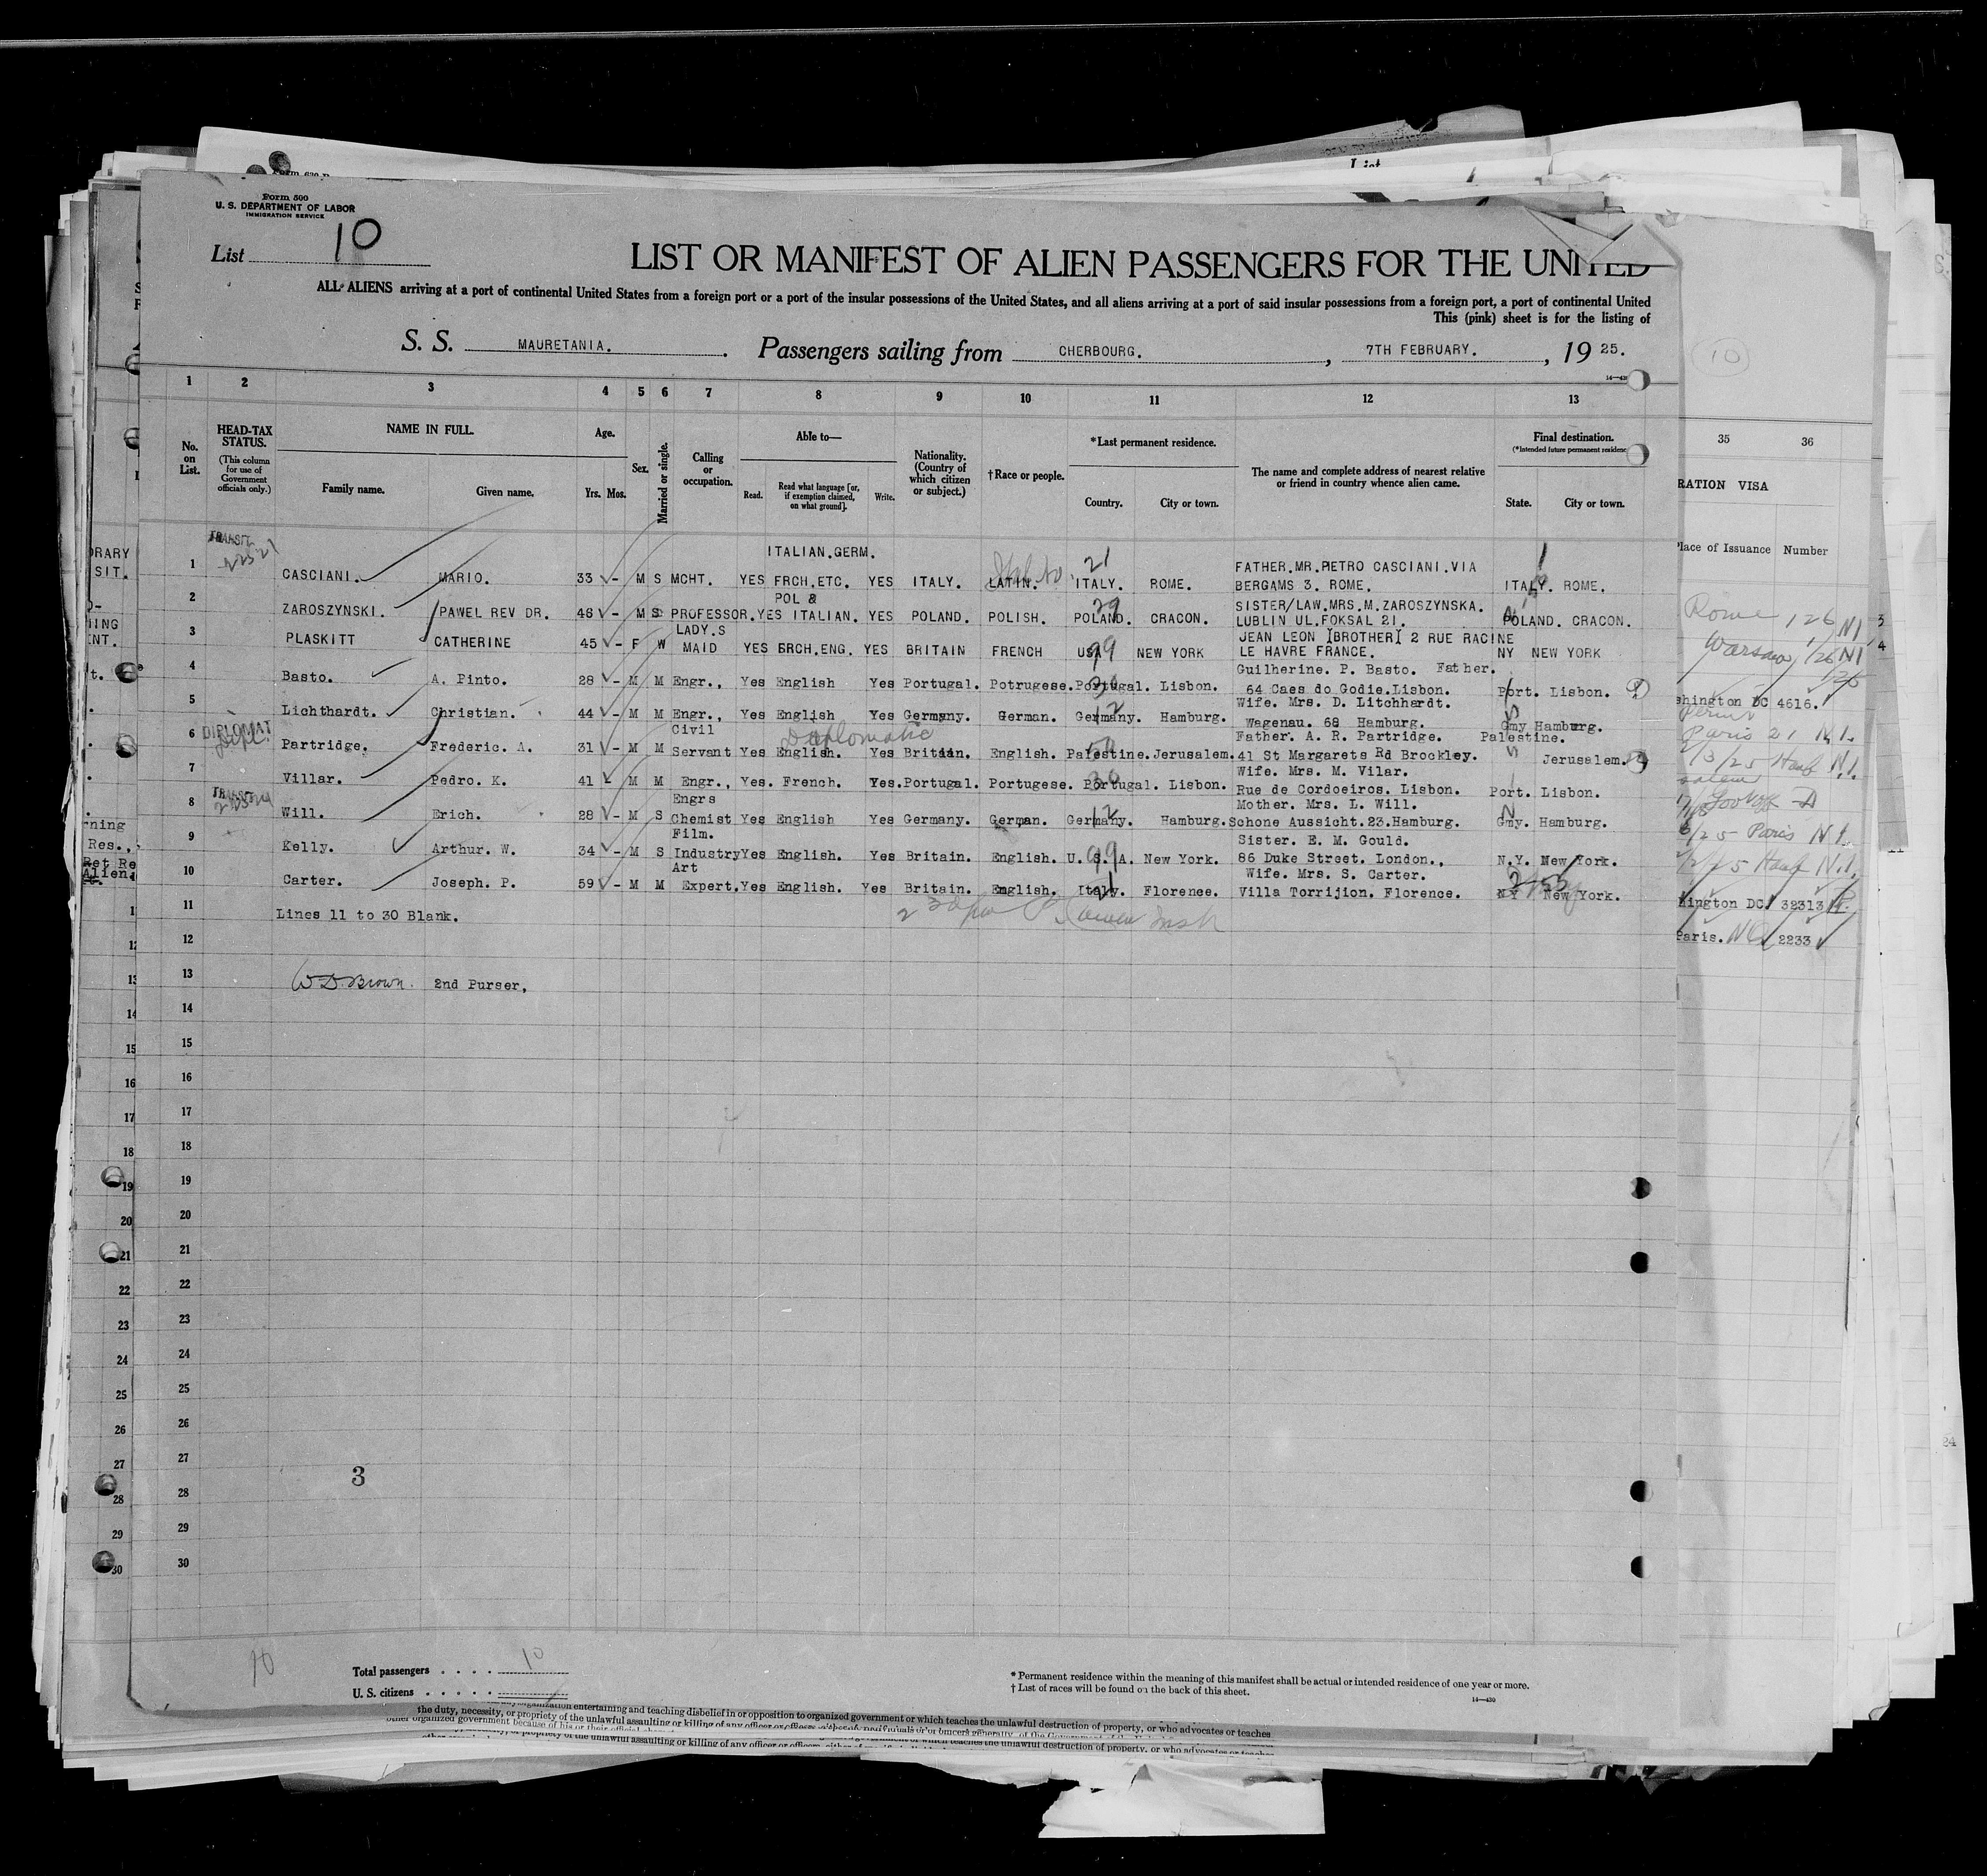 Form 500
U. S. DEPARTMENT OF LABOR
IMMIGRATION SERVICE
List 10
LIST OR MANIFEST OF ALIEN PASSENGERS FOR THE UNITED
ALL ALIENS arriving at a port of continental United States from a foreign port or a port of the insular possessions of the United States, and all aliens arriving at a port of said insular possessions from a foreign port, a port of continental United
This (pink) sheet is for the listing of
S. S. MAURETANIA. Passengers sailing from CHERBOURG. , 7TH FEBRUARY. , 19 25.
1 2 3 4 5 6 7 8 9 10 11 12 13
No. on List.
HEAD-TAX STATUS.
(This column for use of Government officials only.)
NAME IN FULL.
Family name. Given name.
Age.
Yrs. Mos.
Sex.
Married or single.
Calling or occupation.
Able to—
Read. Read what language [or, if exemption claimed, on what ground]. Write.
Nationality. (Country of which citizen or subject.)
†Race or people.
*Last permanent residence.
Country. City or town.
The name and complete address of nearest relative or friend in country whence alien came.
Final destination.
(*Intended future permanent residence
State. City or town.
35 36
RATION VISA
Place of Issuance Number
TRANSIT
ITALIAN.GERM. 21 FATHER.MR.PIETRO CASCIANI.VIA
1 CASCIANI. MARIO. 33 - M S MCHT. YES FRCH.ETC. YES ITALY. LATIN. ITALY. ROME. BERGAMS 3. ROME. ITALY. ROME.
POL & SISTER/LAW.MRS.M.ZAROSZYNSKA.
2 ZAROSZYNSKI. PAWEL REV DR. 46 - M S PROFESSOR. YES ITALIAN. YES POLAND. POLISH. POLAND. CRACON. LUBLIN UL.FOKSAL 21. POLAND. CRACON.
LADY.S JEAN LEON [BROTHER] 2 RUE RACINE
3 PLASKITT CATHERINE 45 - F W MAID YES FRCH.ENG. YES BRITAIN FRENCH USA NEW YORK LE HAVRE FRANCE. NY NEW YORK
Guilherine. P. Basto. Father.
4 Basto. A. Pinto. 28 - M M Engr., Yes English Yes Portugal. Potrugese. Portugal. Lisbon. 64 Caes do Godie.Lisbon. Port. Lisbon.
Wife. Mrs. D. Litchhardt.
5 Lichthardt. Christian. 44 - M M Engr., Yes English Yes Germany. German. Germany. Hamburg. Wagenau. 68 Hamburg. Gmy Hamburg.
DIPLOMAT Civil Diplomatic Father. A. R. Partridge. Palestine.
6 Partridge. Frederic. A. 31 - M M Servant Yes English. Yes Britain. English. Palestine. Jerusalem. 41 St Margarets Rd Brockley. Jerusalem.
Wife. Mrs. M. Vilar.
7 Villar. Pedro. K. 41 - M M Engr., Yes. French. Yes. Portugal. Portugese. Portugal. Lisbon. Rue de Cordoeiros. Lisbon. Port. Lisbon.
TRANSIT Engrs Mother. Mrs. L. Will.
8 Will. Erich. 28 - M S Chemist Yes English Yes Germany. German. Germany. Hamburg. Schone Aussicht.23.Hamburg. Gmy. Hamburg.
Film. Sister. E. M. Gould.
9 Kelly. Arthur. W. 34 - M S Industry Yes English. Yes Britain. English. U. S. A. New York. 86 Duke Street. London., N.Y. New York.
Art Wife. Mrs. S. Carter.
10 Carter. Joseph. P. 59 - M M Expert. Yes English. Yes Britain. English. Italy. Florence. Villa Torrijion. Florence. NY New York.
11 Lines 11 to 30 Blank.
12
13 W D. Brown. 2nd Purser,
14
15
16
17
18
19
20
21
22
23
24
25
26
27
28
29
30
3
Rome 1/26 NI
Warsaw 1/26 NI
shington DC 4616.
Paris
ington DC. 32313
Paris. 2233
10
Total passengers . . . . . 10
U. S. citizens . . . . .
* Permanent residence within the meaning of this manifest shall be actual or intended residence of one year or more.
† List of races will be found on the back of this sheet.
14—430
the duty, necessity, or propriety of the unlawful assaulting or killing of any officer or officers,